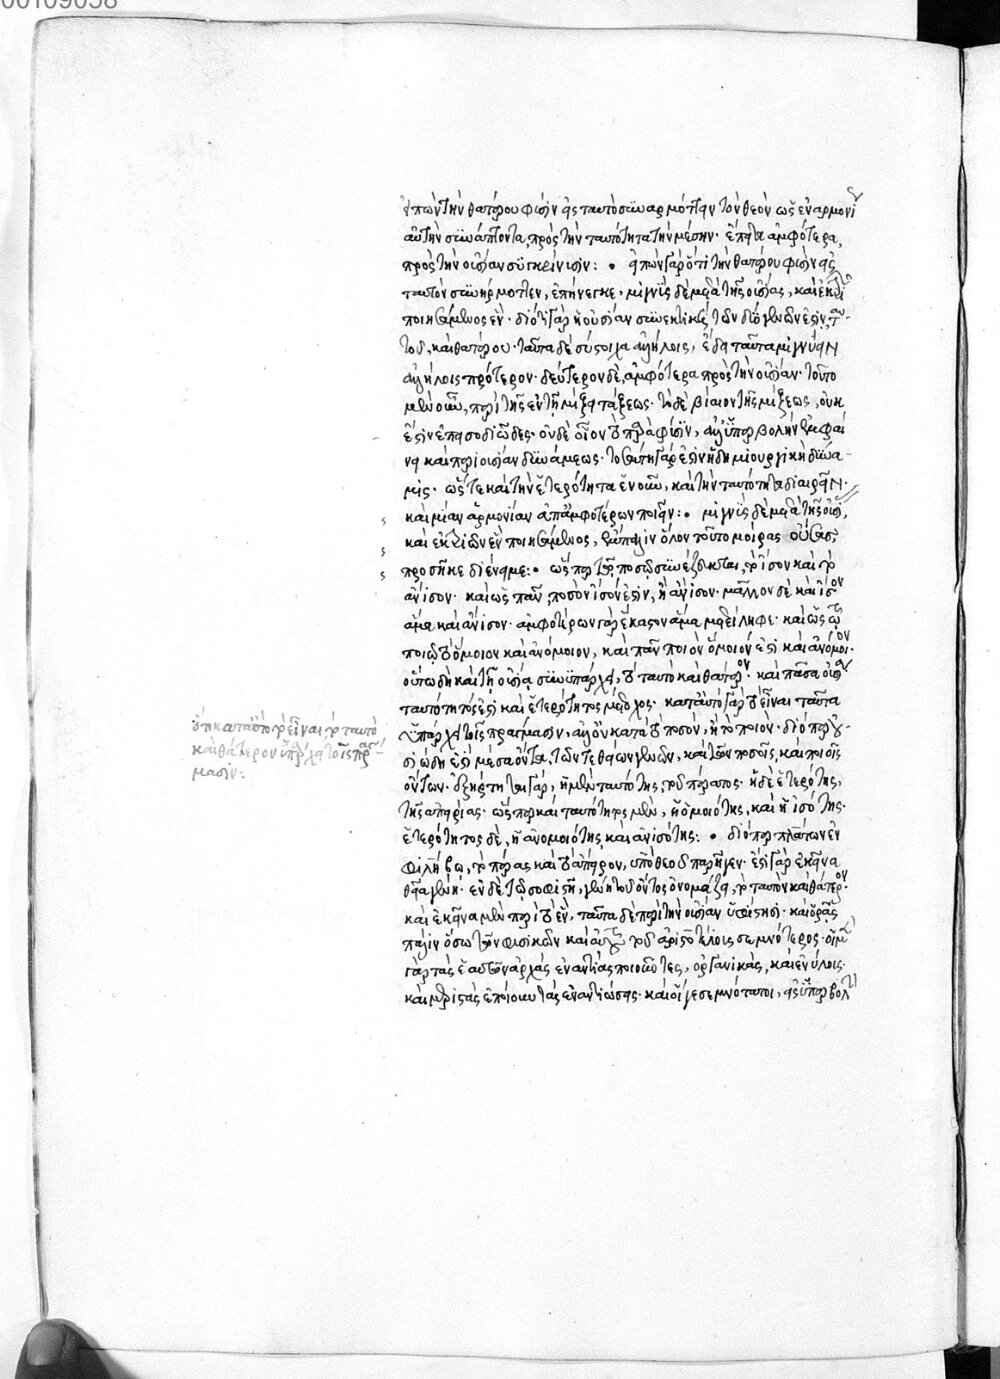 00109058
εἰπὼν τὴν θατέρου φύσιν εἰς ταυτὸ συναρμόττειν τὸν θεὸν ὡς ἐναρμονί
αὐτὴν συνάπτοντα, πρὸς τὴν ταυτότητα τὴν μέσην. ἔπειτα ἀμφότερα,
πρὸς τὴν οὐσίαν
εἰπὼν γὰρ ὅτι τὴν θατέρου φύσιν εἰς
ταυτὸν συνήρμοττεν, ἐπήνεγκε, μιγνὺς δὲ μετὰ τῆς οὐσίας, καὶ ἐκ τριῶν
ποιησάμενος ἕν. διότι γὰρ ἡ οὐσία συνεκτική τῶν δύο γενῶν ἐστιν, ταυ-
τοῦ, καὶ θατέρου. ταῦτα δὲ σύστοιχα ἀλλήλοις, ἔδει ταῦτα μιγνύειν
ἀλλήλοις πρότερον. δεύτερον δὲ, ἀμφότερα πρὸς τὴν οὐσίαν. τοῦτο
μὲν οὖν, περὶ τῆς ἐν τῇ μίξει τάξεως. τὸ δὲ βίαιον τῆς μίξεως, οὐκ
ἔστιν ἐπεισοδιῶδες. οὐδὲ οἷον τὸ παρὰ φύσιν, ἀλλ' ὑπερβολὴν ἐμφαί
νει καὶ περιουσίαν δυνάμεως. τοιαύτη γάρ ἐστιν ἡ δημιουργικὴ δύνα-
μις. ὥστε καὶ τὴν ἑτερότητα ἑνοῦν, καὶ τὴν ταυτότητα διαιρεῖν.
καὶ μίαν ἁρμονίαν ἀπ' ἀμφοτέρων ποιεῖν: • μιγνὺς δὲ μετὰ τῆς οὐσίας,
καὶ ἐκ τριῶν ἓν ποιησάμενος, πάλιν ὅλον τοῦτο μοίρας ὅσας
προσῆκε διένειμε: • ὥσπερ τῷ ποσῷ συνέζευκται, τὸ ἴσον καὶ τὸ
ἄνισον. καὶ ὡς πᾶν ποσὸν ἴσον ἐστὶν, ἢ ἄνισον. μᾶλλον δὲ καὶ ἴσον
ἅμα καὶ ἄνισον. ἀμφοτέρων γὰρ ἕκαστον ἅμα μετείληφε. καὶ ὡς τῷ
ποιῷ τὸ ὅμοιον καὶ ἀνόμοιον, καὶ πᾶν ποιὸν ὅμοιόν ἐστι καὶ ἀνόμοιον.
οὕτω δὴ καὶ τῇ οὐσίᾳ συνυπάρχει, τὸ ταυτὸ καὶ θάτερον. καὶ πᾶσα οὐσία
ταυτότητός ἐστι καὶ ἑτερότητος μέτοχος. κατ' αὐτὸ γὰρ τὸ εἶναι ταῦτα
ὑπάρχει τοῖς πράγμασιν, ἀλλ' οὐ κατὰ τὸ ποσὸν, ἢ τὸ ποιόν. διόπερ οὐ-
σιώδη ἐστὶ μέσα ὄντα, τῶν τε θείων γενῶν, καὶ τῶν ποσοῖς, καὶ ποιοῖς
ὄντων. ἐξήρτηται γὰρ, ἡ μὲν ταυτότης, τοῦ πέρατος. ἡ δὲ ἑτερότης,
τῆς ἀπειρίας. ὥσπερ καὶ ταυτότητος μὲν, ἡ ὁμοιότης, καὶ ἡ ἰσότης.
ἑτερότητος δὲ, ἡ ἀνομοιότης καὶ ἀνισότης: • διόπερ πλάτων ἐν
φιλήβῳ, τὸ πέρας καὶ τὸ ἄπειρον, ὑπὸ θεοῦ παρῆγεν. ἔστι γὰρ ἐκεῖνα
θεῖα γένη. ἐν δὲ τῷ σοφιστῇ, γένη τοῦ ὄντος ὀνομάζει, τὸ ταυτὸν καὶ θάτερον.
καὶ ἐκεῖνα μὲν περὶ τὸ ἕν, ταῦτα δὲ περὶ τὴν οὐσίαν ὑφίστησι. καὶ ὁρᾷς
πάλιν ὅσῳ τῶν φυσικῶν καὶ αὐτοῦ τοῦ ἀριστοτέλους σεμνότερος. οἱ μὲν
γὰρ τὰς ἑαυτῶν ἀρχὰς ἐναντίας ποιοῦντες, ὀργανικὰς, καὶ ἐνύλους.
καὶ μεριστὰς ἐποίουν τὰς ἐναντιώσεις. καὶ οἵ γε σεμνότατοι, εἰς ὑπερβολὴν
ὅτι κατ' αὐτὸ τὸ εἶναι, τὸ ταυτὸ
καὶ θάτερον ὑπάρχει τοῖς πράγ-
μασιν: